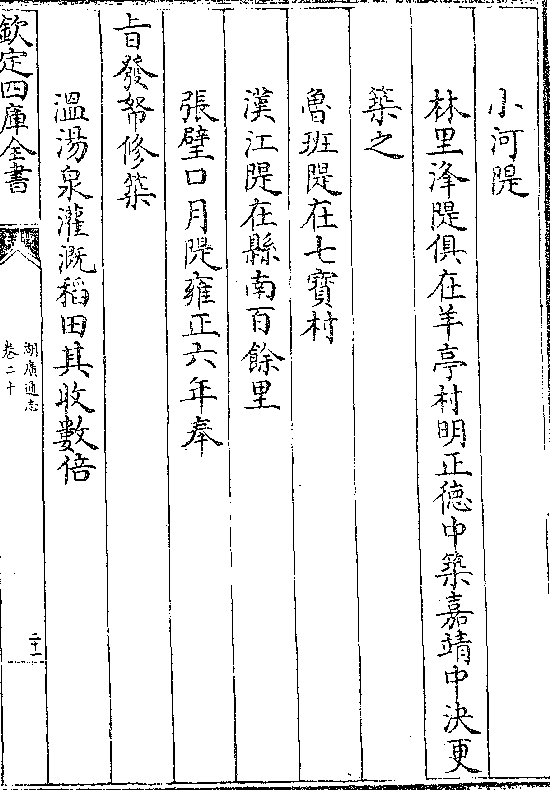 小河隄
林里洚隄俱在羊亭村明正德中築嘉靖中決更
築之
魯班隄在七寶村
漢江隄在縣南百餘里
張壁口月隄雍正六年奉
旨發帑修築
溫湯泉灌溉稻田其收數倍
欽定四庫全書
湖廣通志
卷二十
二十一